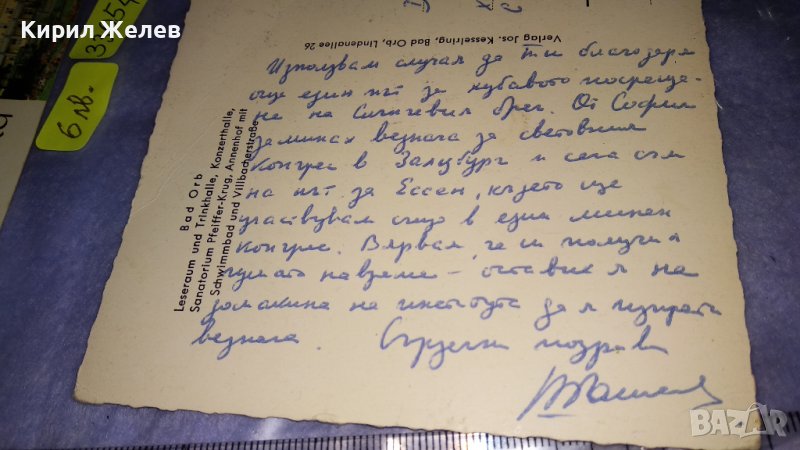 Кирил Желев
6 лв.
Verlag Jos. Kesselring, Bad Orb, Lindenallee 26
Bad Orb
Leseraum und Trinkhalle, Konzerthalle,
Sanatorium Pfeiffer-Krug, Annenhof mit
Schwimmbad und Villbacherstraße
Използвам случая да ти благодаря
още един път за хубавото посреща-
не на Слънчевия бряг. От София
заминах веднага за световния
конгрес в Залцбург и сега съм
на път за Ессен, където ще
участвувам също в един минен
конгрес. Вярвам, че си получил
на време – оставих я на
домакина на института да я изпрати
веднага. Сърдечни поздрави
BAZAR